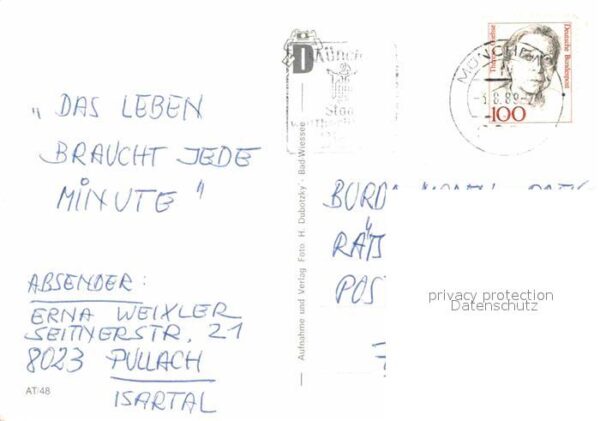 „ DAS LEBEN
BRAUCHT JEDE
MINUTE "
ABSENDER:
ERNA WEIXLER
SEITNERSTR. 21
8023 PULLACH
ISARTAL
AT/48
Aufnahme und Verlag Foto H. Dubotzky · Bad-Wiessee
D
Münch
Deutsche Bundespost
100
MÜNCHEN
8.89
BURDA
POST
privacy protection
Datenschutz